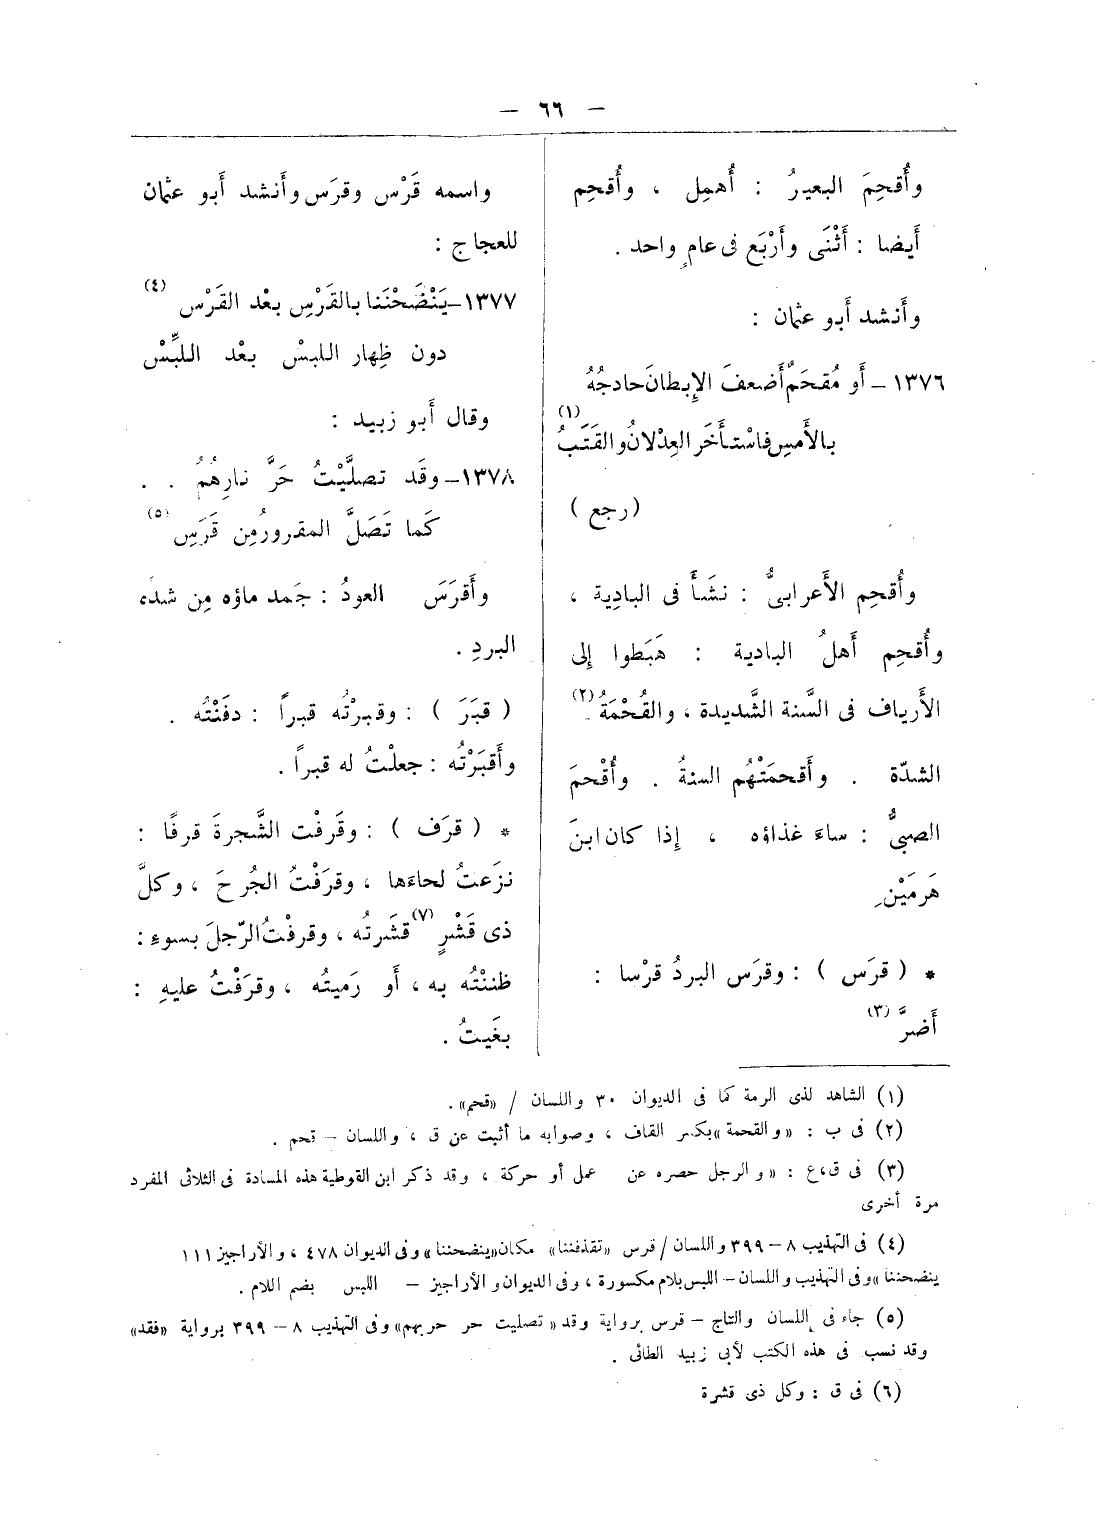 — ٦٦ —
وأُقحِمَ البعيرُ : أُهمِل ، وأُقحِم
أَيضا : أَثْنَى وأَرْبَع فى عامٍ واحد .
وأَنشد أَبو عثمان :
١٣٧٦ – أَو مُقحَمٌ أَضعفَ الإِبطانَ حادجُهُ
بالأَمسِ فاسْتأَخَر العِدْلانُ والقَتَبُ (١)
( رجع )
وأُقحِم الأَعرابىُّ : نشَأَ فى البادِية ،
وأُقحِم أَهلُ البادية : هَبَطوا إِلى
الأَرياف فى السَّنة الشَّديدة ، والقُحْمَةُ (٢)
الشدّة . وأَقحمَتْهُم السنةُ . وأُقْحمَ
الصبىُّ : ساءَ غذاؤه ، إِذا كان ابنَ
هَرمَيْنِ
* ( قرَس ) : وقرَس البردُ قرْسا :
أَضرَّ (٣)
واسمه قَرْس وقرَس وأَنشد أَبو عثمان
للعجاج :
١٣٧٧ – يَنْضَحْنَنا بالقَرْسِ بعْد القَرْس (٤)
دون ظِهار اللبسْ بعْد اللبِّسْ
وقال أَبو زبيد :
١٣٧٨ – وقَد تصلَّيْتُ حَرَّ نارِهُمُ . .
كَما تَصَلَّ المقرورُ مِن قَرَسِ (٥)
وأَقرَسَ العودُ : جَمد ماؤه مِن شدة
البردِ .
( قبَرَ ) : وقبرْتُه قبراً : دفَنْتُه .
وأَقبَرْتُه : جعلْتُ له قبراً .
* ( قرَف ) : وقَرفْت الشَّجرةَ قرفًا :
نزَعتُ لحاءَها ، وقرَفْتُ الجُرحَ ، وكلَّ
ذى قَشْرٍ (٧) قشَرتُه ، وقرفْتُ الرّجلَ بسوءٍ :
ظننْتُه به ، أَو رَميتُه ، وقرَفْتُ عليهِ :
بغَيتُ .
(١) الشاهد لذى الرمة كما فى الديوان ٣٠ واللسان / «قحم» .
(٢) فى ب : «والقحمة» بكسر القاف ، وصوابه ما أثبت عن ق ، واللسان – قحم .
(٣) فى ق ، ع : «والرجل حصره عن عمل أو حركة ، وقد ذكر ابن القوطية هذه المسادة فى الثلاثى المفرد
مرة أخرى
(٤) فى التهذيب ٨ – ٣٩٩ واللسان / قرس «تقذفننا» مكان «ينضحننا» وفى الديوان ٤٧٨ ، والأراجيز ١١١
ينضحننا» وفى التهذيب واللسان – اللبس بلام مكسورة ، وفى الديوان والأراجيز – اللبس بضم اللام .
(٥) جاء فى اللسان والتاج – قرس برواية وقد «تصليت حر حربهم» وفى التهذيب ٨ – ٣٩٩ برواية «فقد»
وقد نسب فى هذه الكتب لأبى زبيد الطائى .
(٦) فى ق : وكل ذى قشرة